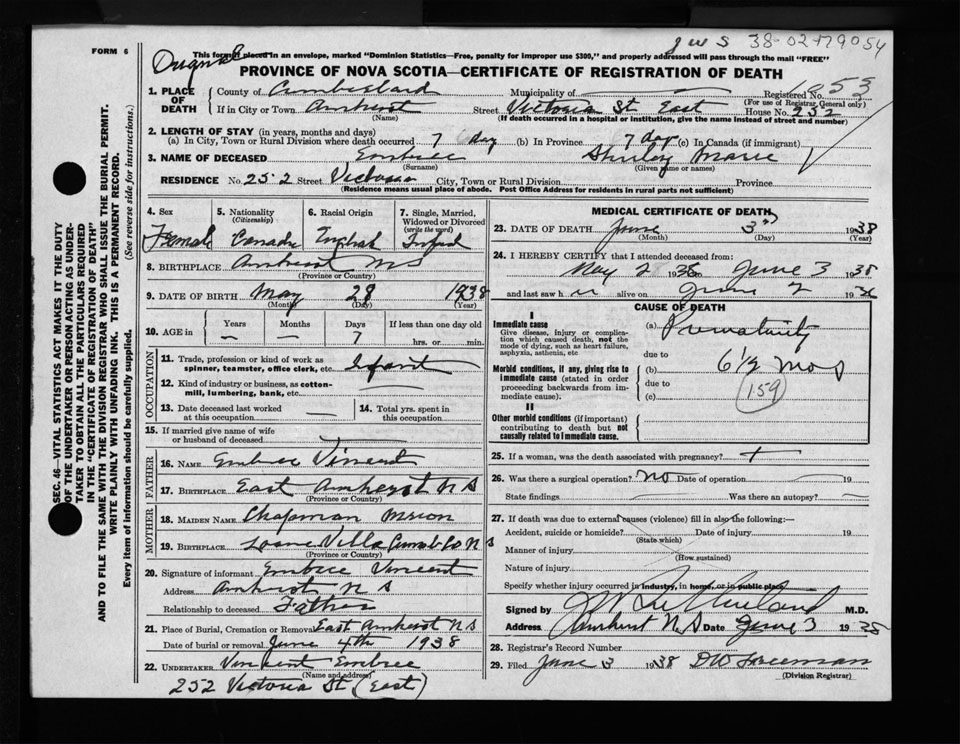 JWS 38-02479054
FORM 6
Original
This form placed in an envelope, marked "Dominion Statistics—Free, penalty for improper use $300," and properly addressed will pass through the mail "FREE"
PROVINCE OF NOVA SCOTIA—CERTIFICATE OF REGISTRATION OF DEATH
SEC. 46—VITAL STATISTICS ACT MAKES IT THE DUTY
OF THE UNDERTAKER OR PERSON ACTING AS UNDER-
TAKER TO OBTAIN ALL THE PARTICULARS REQUIRED
IN THE "CERTIFICATE OF REGISTRATION OF DEATH"
AND TO FILE THE SAME WITH THE DIVISION REGISTRAR WHO SHALL ISSUE THE BURIAL PERMIT.
WRITE PLAINLY WITH UNFADING INK. THIS IS A PERMANENT RECORD.
Every item of information should be carefully supplied. (See reverse side for instructions.)
1. PLACE OF DEATH
County of Cumberland Municipality of Registered No. 53
(For use of Registrar General only)
If in City or Town Amherst Street Victoria St East House No. 252
(Name) (If death occurred in a hospital or institution, give the name instead of street and number)
2. LENGTH OF STAY (in years, months and days)
(a) In City, Town or Rural Division where death occurred 7 day (b) In Province 7 day (c) In Canada (if immigrant)
3. NAME OF DECEASED Embree Shirley Marie
(Surname) (Given name or names)
RESIDENCE No. 252 Street Victoria City, Town or Rural Division Province
(Residence means usual place of abode. Post Office Address for residents in rural parts not sufficient)
4. Sex 5. Nationality 6. Racial Origin 7. Single, Married,
(Citizenship) Widowed or Divorced
(write the word)
Female Canada English Single
8. BIRTHPLACE Amherst N S
(Province or Country)
9. DATE OF BIRTH May 28 1938
(Month) (Day) (Year)
10. AGE in Years Months Days If less than one day old
— — 7 hrs. or min.
OCCUPATION
11. Trade, profession or kind of work as
spinner, teamster, office clerk, etc. Infant
12. Kind of industry or business, as cotton-
mill, lumbering, bank, etc.
13. Date deceased last worked
at this occupation
14. Total yrs. spent in
this occupation
15. If married give name of wife
or husband of deceased
FATHER
16. NAME Embree Vincent
17. BIRTHPLACE East Amherst N S
(Province or Country)
MOTHER
18. MAIDEN NAME Chapman
19. BIRTHPLACE Villa Cumb Co N S
(Province or Country)
20. Signature of informant Embree Vincent
Address Amherst N S
Relationship to deceased Father
21. Place of Burial, Cremation or Removal East Amherst N S
Date of burial or removal June 4th 1938
22. UNDERTAKER Vincent Embree
(Name and address)
252 Victoria St (East)
MEDICAL CERTIFICATE OF DEATH
23. DATE OF DEATH June 3 1938
(Month) (Day) (Year)
24. I HEREBY CERTIFY that I attended deceased from:
May 2 1938 to June 3 1938
and last saw her alive on June 2 1938
CAUSE OF DEATH
I
Immediate cause
Give disease, injury or complica-
tion which caused death, not the
mode of dying, such as heart failure,
asphyxia, asthenia, etc
(a) Prematurity
due to
Morbid conditions, if any, giving rise to
immediate cause (stated in order
proceeding backwards from im-
mediate cause).
(b) 6 1/2 mos
due to
(c) 159
II
Other morbid conditions (if important)
contributing to death but not
causally related to immediate cause.
25. If a woman, was the death associated with pregnancy?
26. Was there a surgical operation? No Date of operation 19
State findings Was there an autopsy?
27. If death was due to external causes (violence) fill in also the following:—
Accident, suicide or homicide? Date of injury 19
(State which)
Manner of injury
(How sustained)
Nature of injury
Specify whether injury occurred in industry, in home, or in public place
Signed by M.D.
Address Amherst N.S Date June 3 1938
28. Registrar's Record Number
29. Filed June 3 1938 DW Freeman
(Division Registrar)